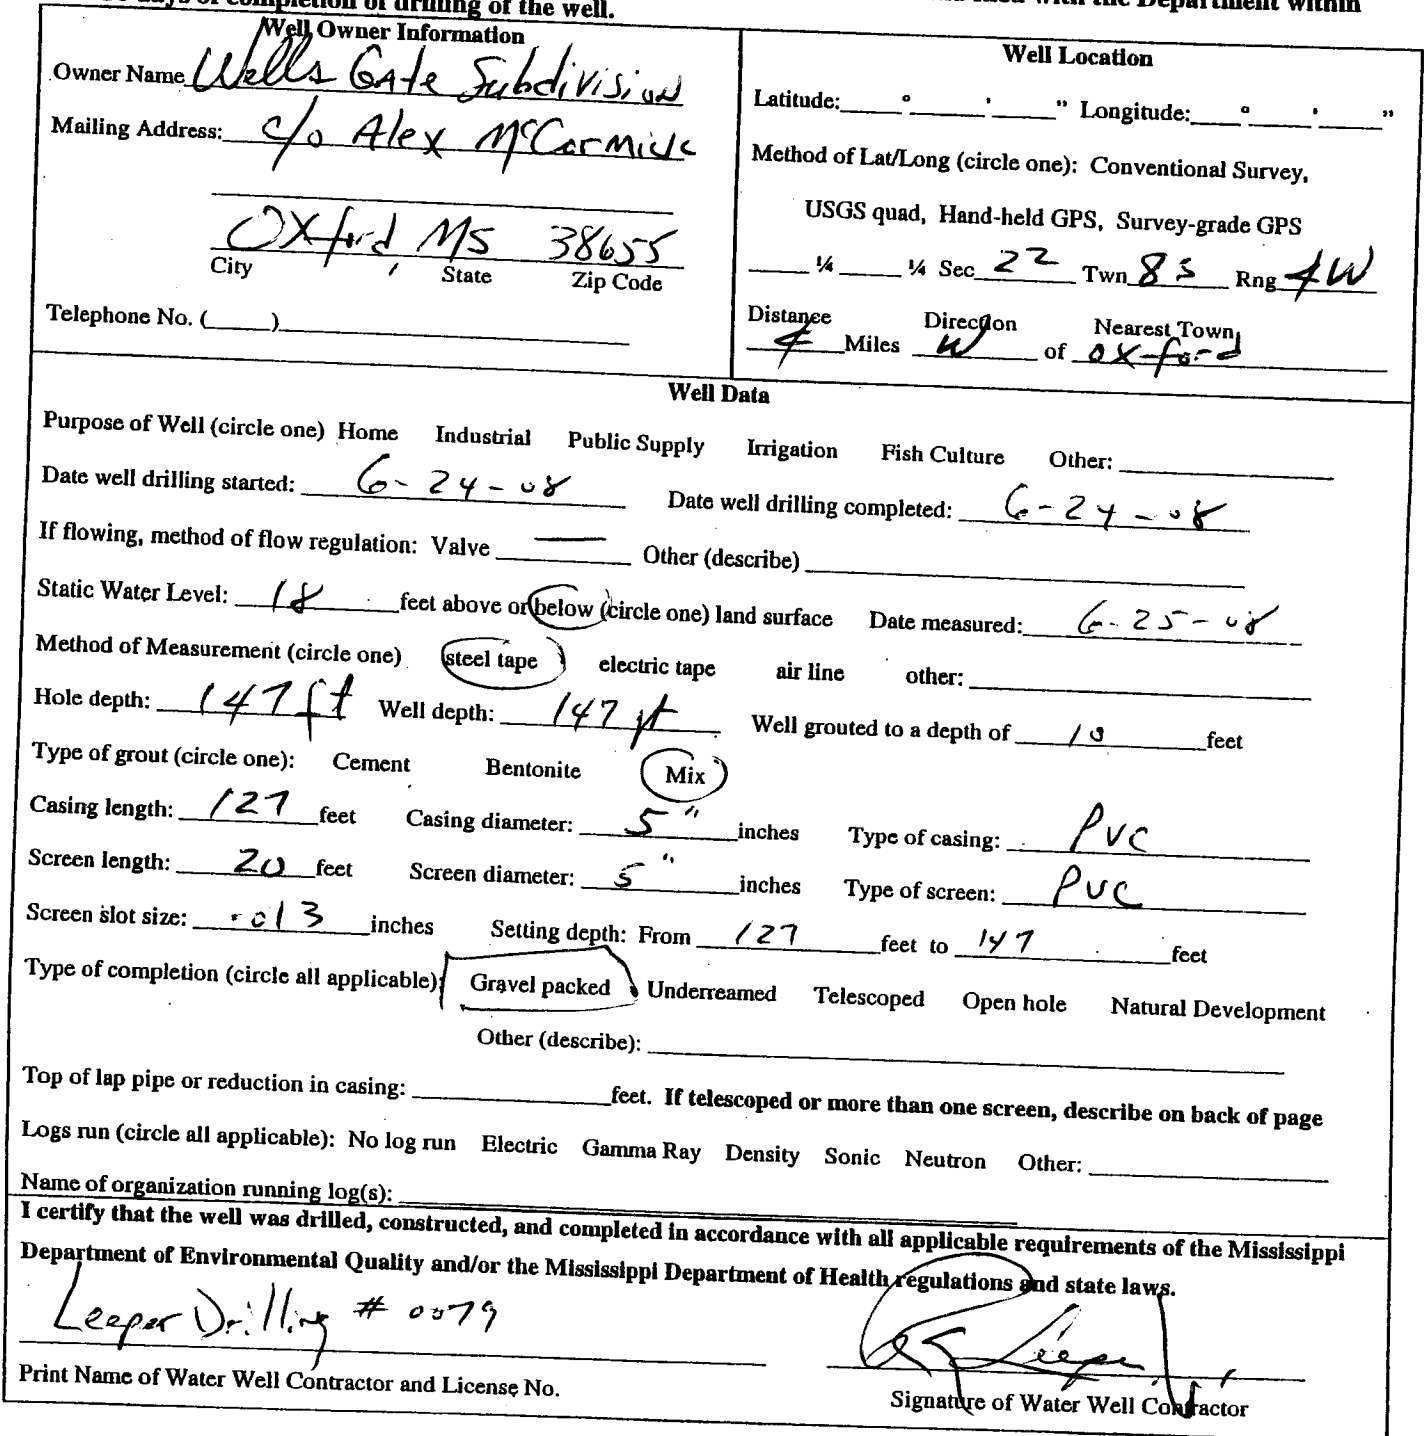 days of completion of drilling of the well.
with the Department within
Well Owner Information
Owner Name Wells Gate Subdivision
Mailing Address: c/o Alex McCormick
Oxford, MS 38655
City State Zip Code
Telephone No. (____)____
Well Location
Latitude:____°____'____" Longitude:____°____'____"
Method of Lat/Long (circle one): Conventional Survey,
USGS quad, Hand-held GPS, Survey-grade GPS
____ ¼ ____ ¼ Sec 22 Twn 8S Rng 4W
Distance Direction Nearest Town
4 Miles W of Oxford
Well Data
Purpose of Well (circle one) Home Industrial Public Supply Irrigation Fish Culture Other: ____
Date well drilling started: 6-24-08 Date well drilling completed: 6-24-08
If flowing, method of flow regulation: Valve — Other (describe) ____
Static Water Level: 18 feet above or below (circle one) land surface Date measured: 6-25-08
Method of Measurement (circle one) steel tape electric tape air line other: ____
Hole depth: 147 ft Well depth: 147 ft Well grouted to a depth of 10 feet
Type of grout (circle one): Cement Bentonite Mix
Casing length: 127 feet Casing diameter: 5" inches Type of casing: PVC
Screen length: 20 feet Screen diameter: 5" inches Type of screen: PVC
Screen slot size: .013 inches Setting depth: From 127 feet to 147 feet
Type of completion (circle all applicable): Gravel packed Underreamed Telescoped Open hole Natural Development
Other (describe): ____
Top of lap pipe or reduction in casing: ____ feet. If telescoped or more than one screen, describe on back of page
Logs run (circle all applicable): No log run Electric Gamma Ray Density Sonic Neutron Other: ____
Name of organization running log(s): ____
I certify that the well was drilled, constructed, and completed in accordance with all applicable requirements of the Mississippi
Department of Environmental Quality and/or the Mississippi Department of Health regulations and state laws.
Leeper Drilling # 0079
Print Name of Water Well Contractor and License No.
Leeper
Signature of Water Well Contractor